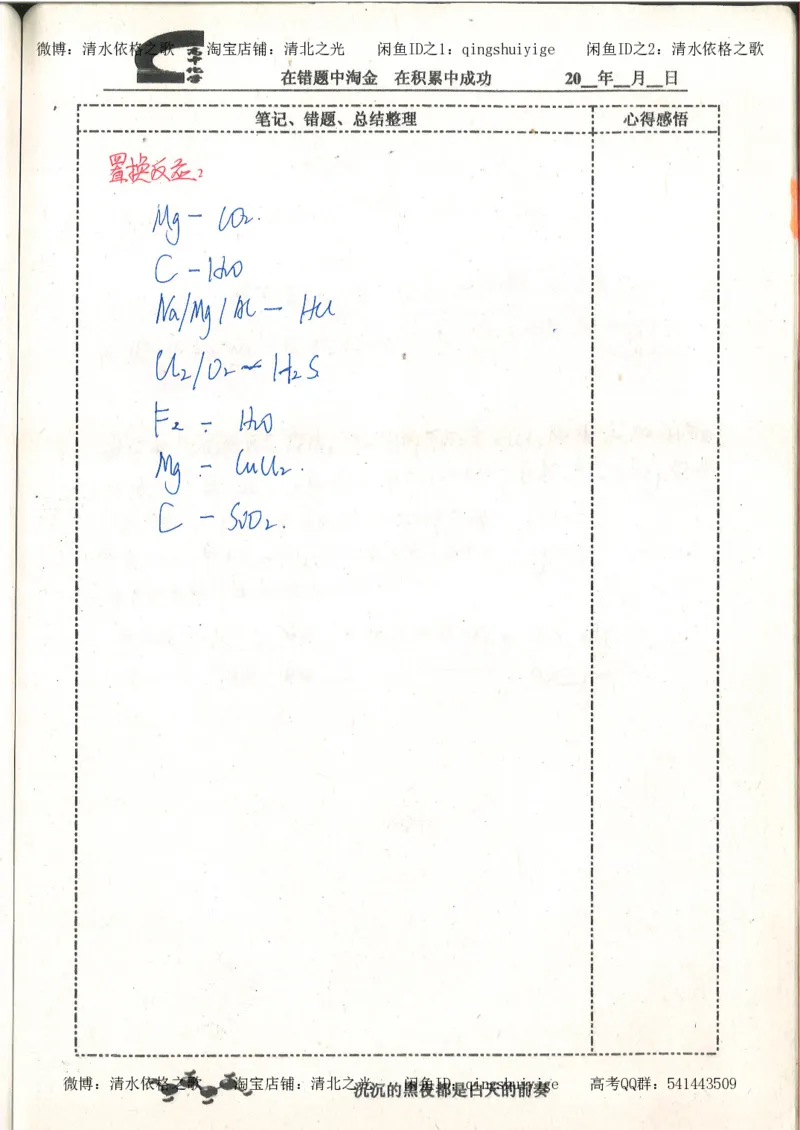 微博：清水依格之歌 淘宝店铺：清北之光 闲鱼ID之1：qingshuiyige 闲鱼ID之2：清水依格之歌
高中化学
在错题中淘金 在积累中成功 20__年__月__日
笔记、错题、总结整理 心得感悟
置换反应：
Mg — CO₂.
C — H₂O
Na/Mg/Al — HCl
Cl₂/O₂ — H₂S
F₂ — H₂O
Mg — CuCl₂.
C — SiO₂.
微博：清水依格之歌 淘宝店铺：清北之光 闲鱼ID：qingshuiyige 高考QQ群：541443509
沉沉的黑夜都是白天的前奏